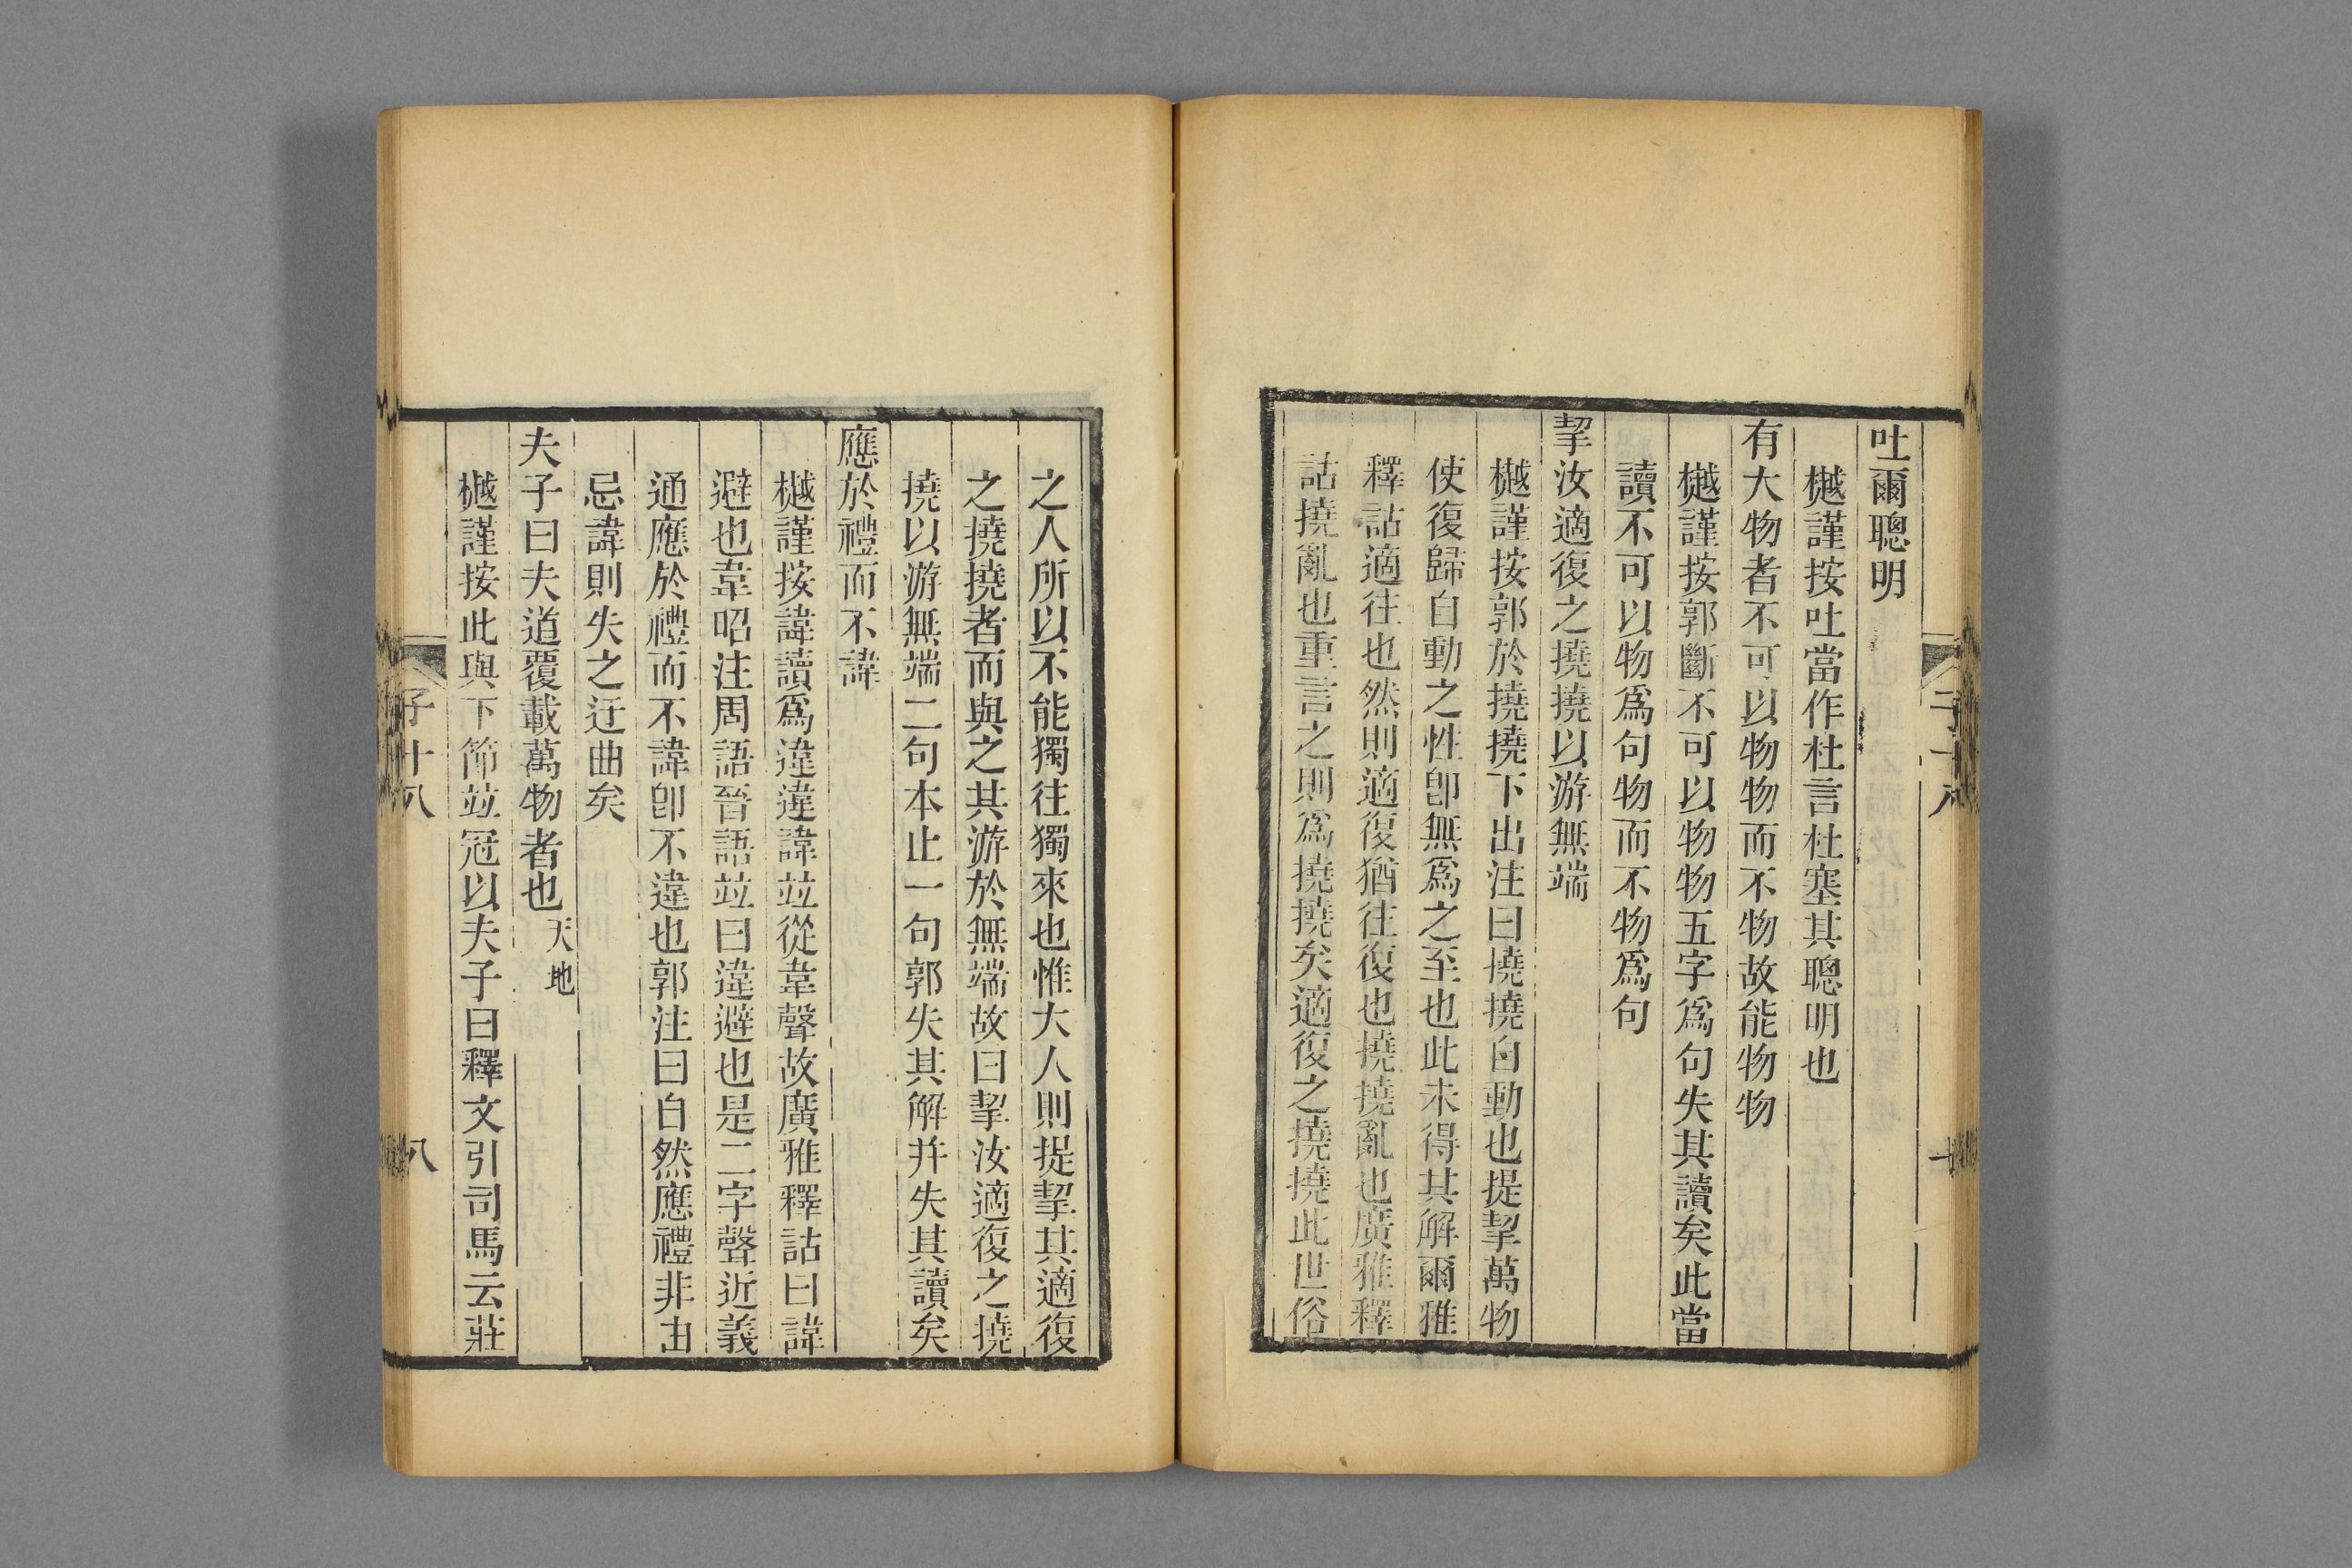 吐爾聰明
樾謹按吐當作杜言杜塞其聰明也
有大物者不可以物物而不物故能物物
樾謹按郭斷不可以物物五字爲句失其讀矣此當
讀不可以物爲句物而不物爲句
挈汝適復之撓撓以游無端
樾謹按郭於撓撓下出注曰撓撓自動也提挈萬物
使復歸自動之性卽無爲之至也此未得其解爾雅
釋詁適往也然則適復猶往復也撓撓亂也廣雅釋
詁撓亂也重言之則爲撓撓矣適復之撓撓此世俗
之人所以不能獨往獨來也惟大人則提挈其適復
之撓撓者而與之其游於無端故曰挈汝適復之撓
撓以游無端二句本止一句郭失其解幷失其讀矣
應於禮而不諱
樾謹按諱讀爲違違諱竝從韋聲故廣雅釋詁曰諱
避也韋昭注周語晉語竝曰違避也是二字聲近義
通應於禮而不諱卽不違也郭注曰自然應禮非由
忌諱則失之迂曲矣
夫子曰夫道覆載萬物者也天地
樾謹按此與下節竝冠以夫子曰釋文引司馬云莊
子十八
八